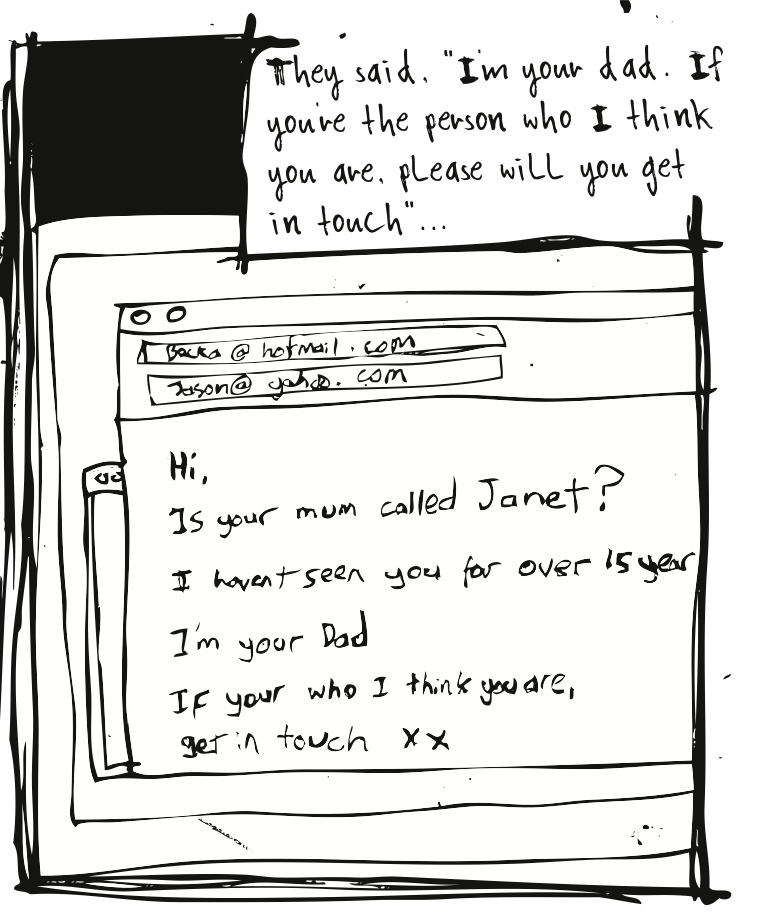 They said, "I'm your dad. If
you're the person who I think
you are, please will you get
in touch"...
Becka@hotmail.com
Jason@yahoo.com
Hi,
Is your mum called Janet?
I havent seen you for over 15 year
I'm your Dad
If your who I think you are,
get in touch xx